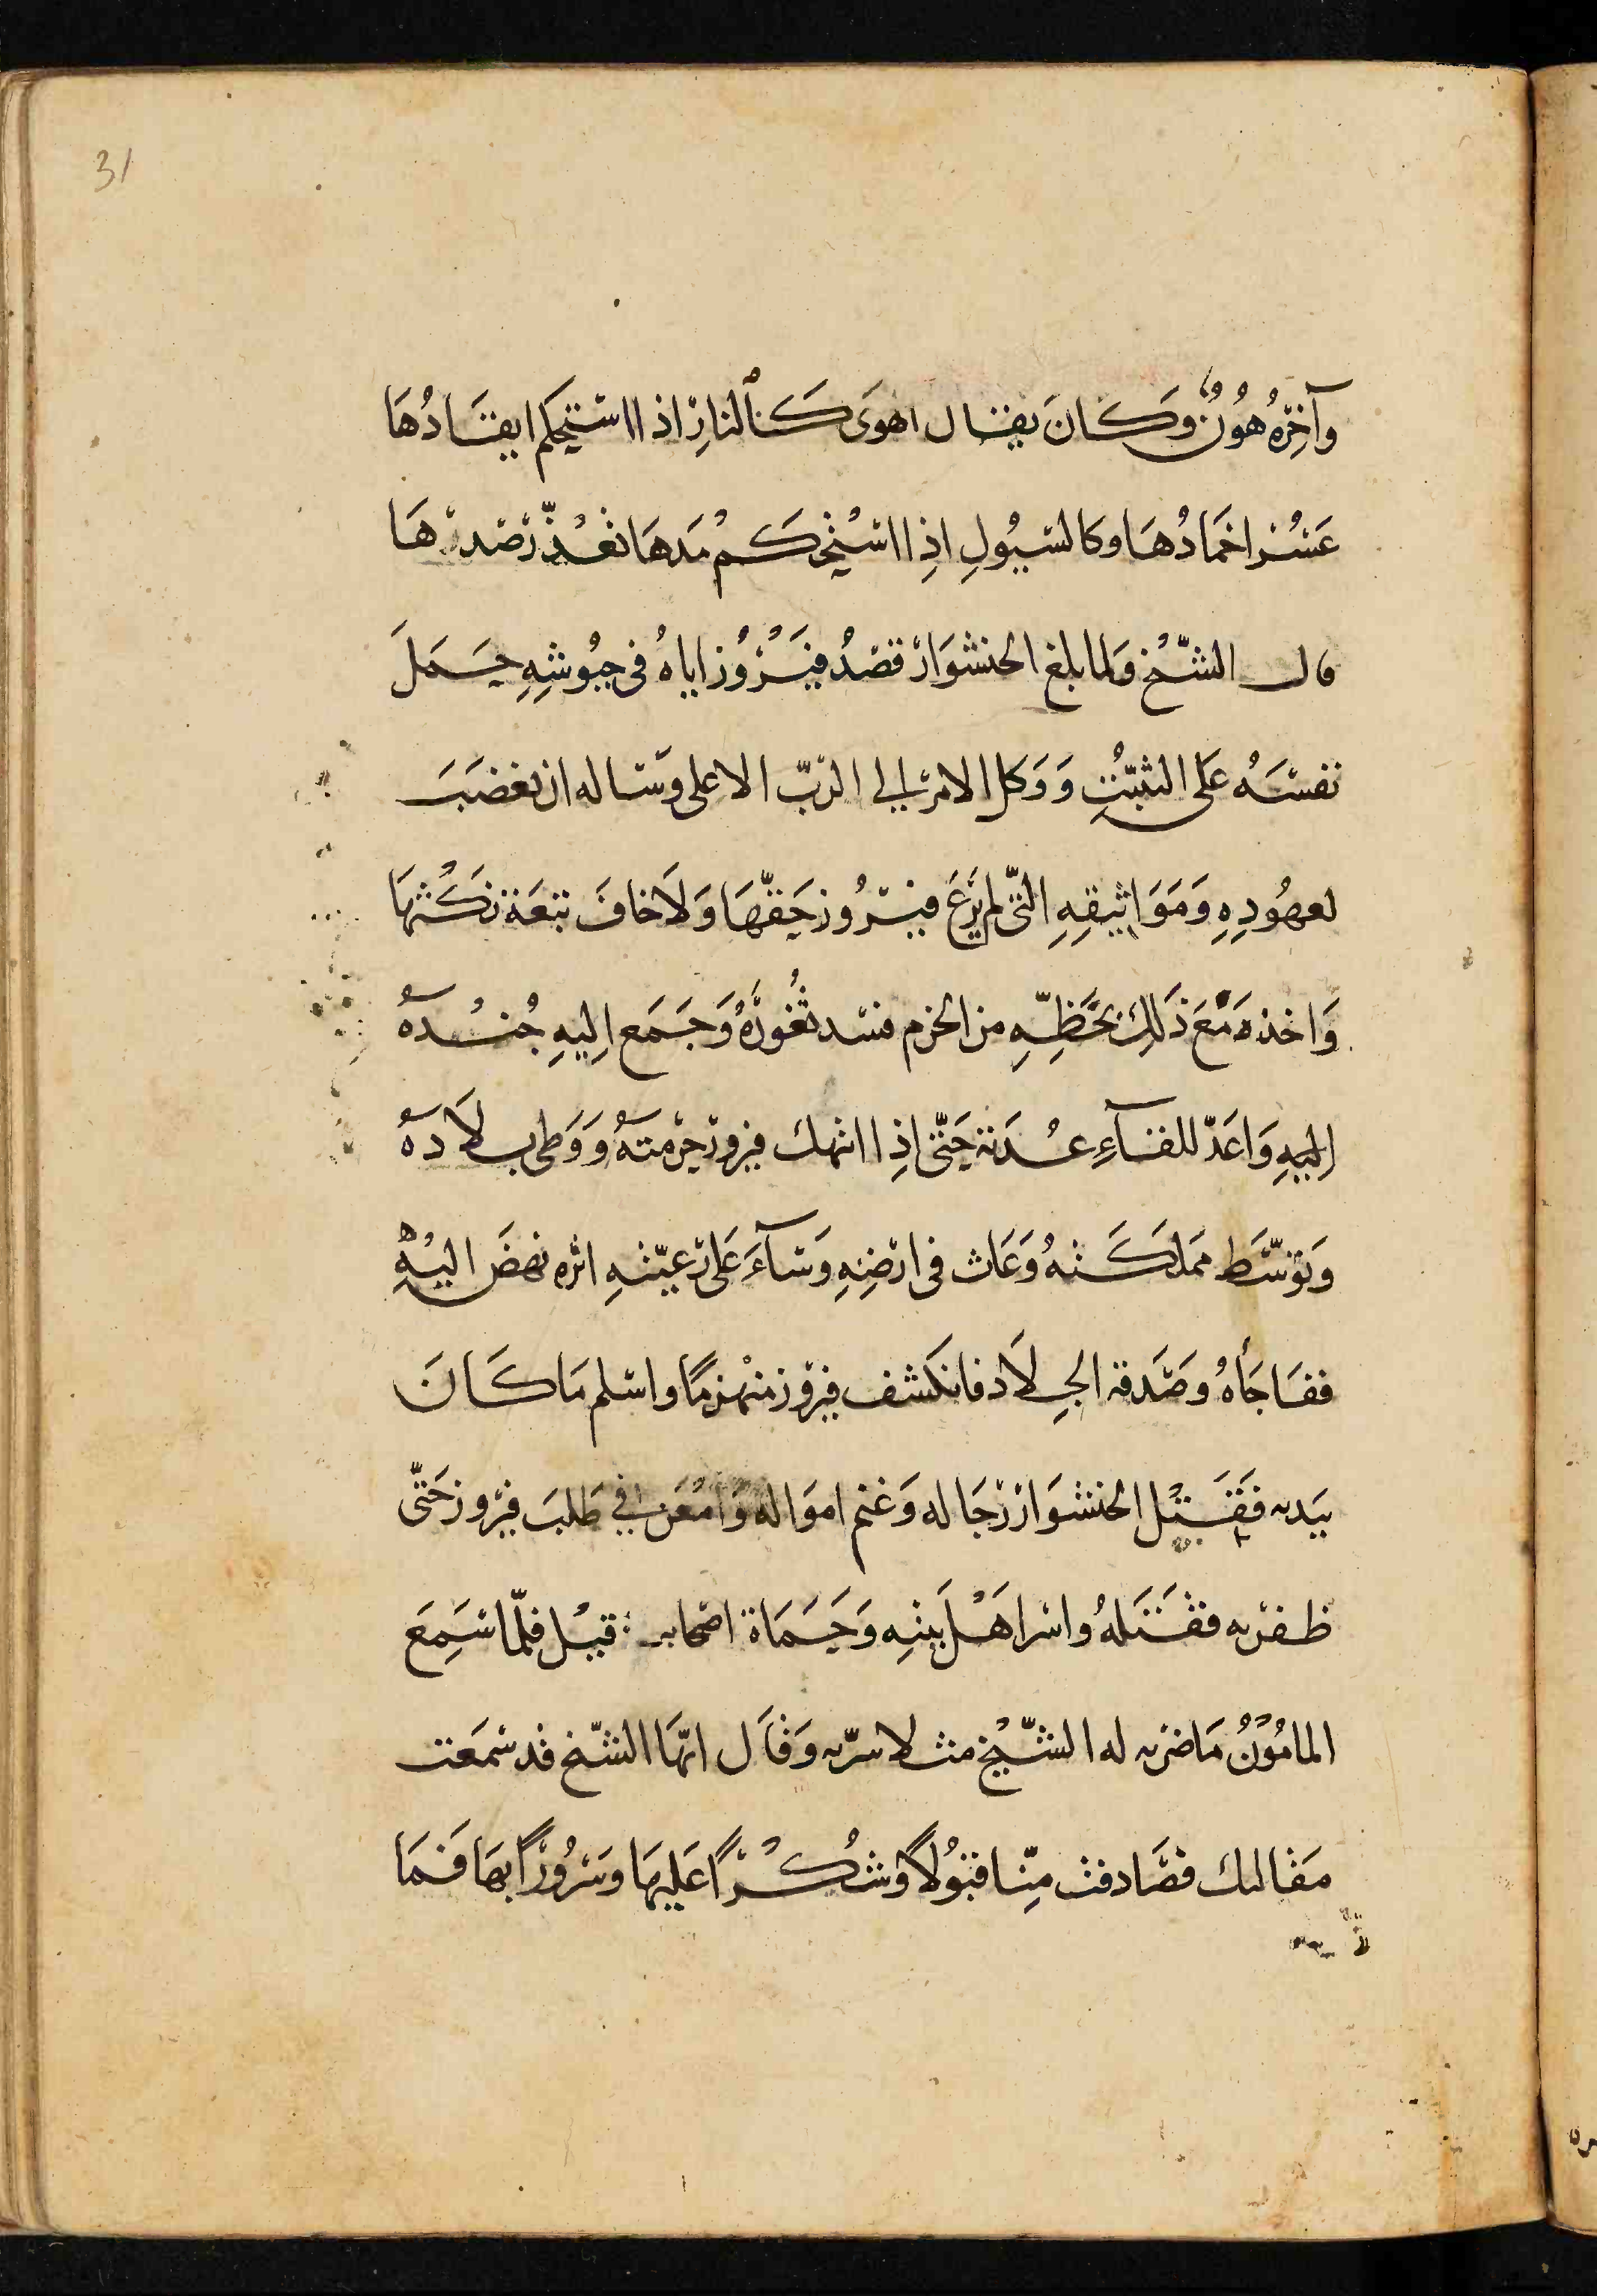 31
وآخِرُهُ هُوُنٌ وَكَانَ يقال الهوَى كَالنارِ اذا استحكم ايقَادُهَا
عَسُر اخمادُهَا وكالسيُولِ اذِا اسْتحكم مَدهَا تعُذّر صَدرّهَا
قال الشّيْخُ وَلما بلغ الخنشوَار قصْدُ فَيْرُوُز اياهُ فى جيُوشِهِ حَمَلَ
نفسَهُ عَلى التثبّتِ وَوَكل الامر الى الربّ الاعلى وسَاله ان يغضَبَ
لعهُودِهِ وَمَوَاثيقِهِ التىّ لم يَرْعَ فيرُوز حَقّهَا وَلاَ خافَ تبعَة نكثهَا
وَاخذه مَعَ ذَلِكَ بحَظِّهِ من الحزم فسد ثغُورَهُ وَجَمَع اِليهِ جُنْدهُ
اِليهِ وَاعَدّ للقآءِ عُدَته حَتّى اذِا انتهك فيروز حرْمتهُ وَوَطى بلاَدهُ
وَتوسّطَ مملَكتهُ وَعَاث فى ارضِهِ وَسآءَ عَلى رعيّتهِ اثره نهضَ اليْهِ
ففَاجَأهُ وصَدقه الجِلاَد فانكشف فيروز منهزمًا واسْلم مَا كَانَ
بيَده فقَتل الخنشوَار رجَاله وَغنم اموَاله وَامعَن في طَلبَ فيرْوز حَتّى
ظفر به فقَتَلهُ واسَر اهَلَ بَيتِه وَحَمَاة اصحابه : قيْل فلمّا سَمِعَ
المامُوُنُ مَا ضرَبه له الشّيْخ مثلا سرّه وَقاَل ايّهَا الشّيخ قد سَمعَت
مَقالتك فصَادفت مِنّا قبُولاً وشُكْرًا عَليهَا وسُرُورًا بهَا فَمَا